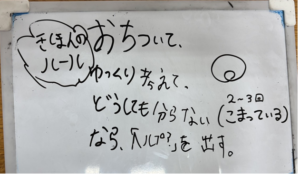 きほんの
ルール
おちついて、
ゆっくり考えて、
どうしても分からない(こまっている)
2~3回
なら、「ヘルプ?」を出す。